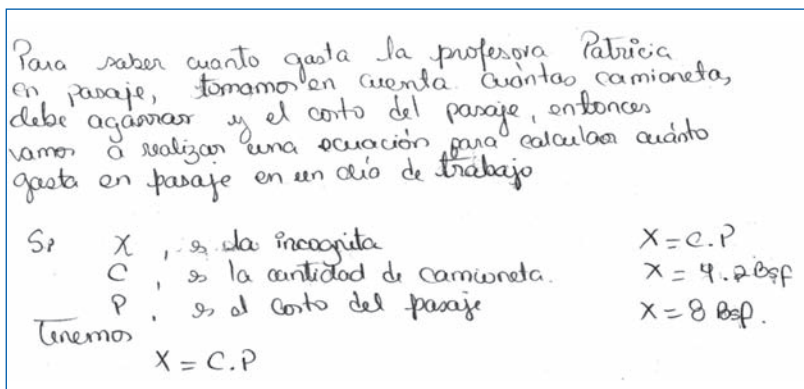 Para saber cuanto gasta la profesora Patricia
en pasaje, tomamos en cuenta cuántas camioneta,
debe agarrar y el costo del pasaje, entonces
vamos a realizar una ecuación para calcular cuánto
gasta en pasaje en un día de trabajo
Si X, es la incognita
C, es la cantidad de camioneta.
P, es el costo del pasaje
Tenemos
X = C.P
X = C.P
X = 4.2Bsf
X = 8 Bsf.